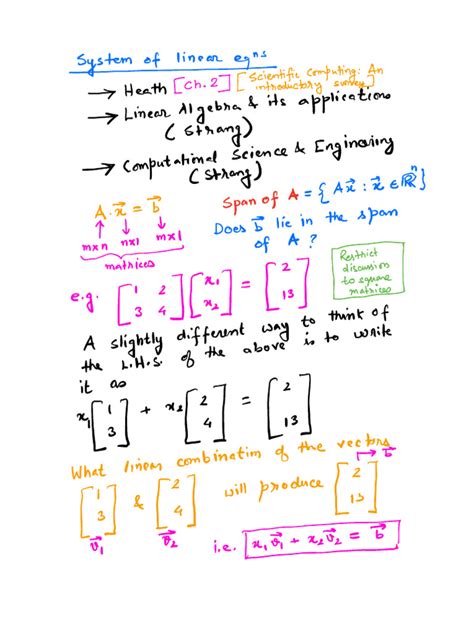 System of linear eqns
→ Heath [Ch. 2] [Scientific Computing: An introductory survey]
→ Linear Algebra & its applications
(Strang)
→ Computational Science & Engineering
(Strang)
A x⃗ = b⃗
m×n n×1 m×1
matrices
Span of A = {A x⃗ : x⃗ ∈ ℝⁿ}
Does b⃗ lie in the span
of A ?
Restrict
discussion
to square
matrices
e.g. [1 2; 3 4] [x₁; x₂] = [2; 13]
A slightly different way to think of
the L.H.S. of the above is to write
it as
x₁ [1; 3] + x₂ [2; 4] = [2; 13]
What linear combination of the vectors
[1; 3] & [2; 4] will produce [2; 13] → b⃗
v⃗₁ v⃗₂
i.e. x₁ v⃗₁ + x₂ v⃗₂ = b⃗